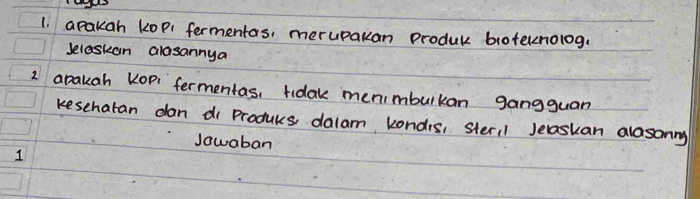 Tugas
1. apakah kopi fermentasi merupakan produk bioteknologi
Jelaskan alasannya
2 apakah kopi fermentasi tidak menimbulkan gangguan
kesehatan dan di produksi dalam kondisi steril Jelaskan alasanny
Jawaban
1